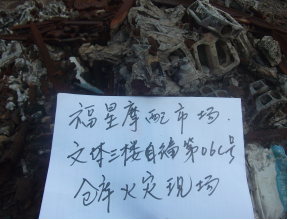 福星摩配市场.
文体三楼自编第06L号
仓库火灾现场